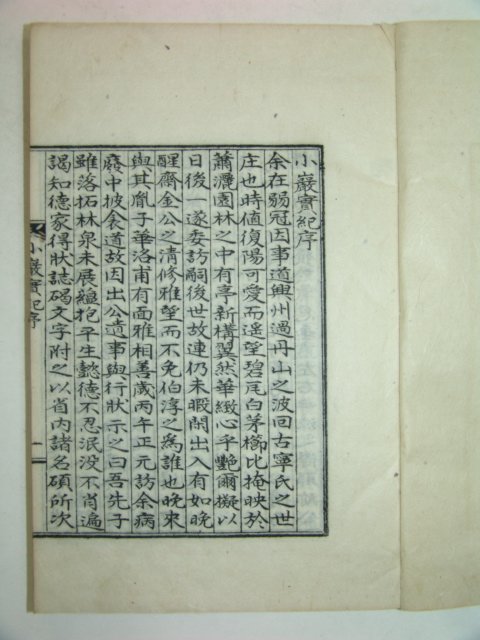 小巖實紀序
余在弱冠因事道興州過丹山之波回古寧氏之世
庄也時値復陽可愛而遥望碧瓦白茅櫛比掩映於
蕭灑園林之中有亭新搆翼然華緻心乎艶爾擬以
日後一遂委訪嗣後世故連仍未暇閒出入有如晚
醒齋金公之清修雅望而不免伯淳之爲誰也晚来
與其胤子華洛甫有面雅相善歲丙午正元訪余病
廢中披衾道故因出公遺事與行狀示之曰吾先子
雖落拓林泉未展緼抱平生懿德不忍泯没不肖遍
謁知德家得狀誌碣文字附之以省内諸名碩所次
小巖實紀序
一